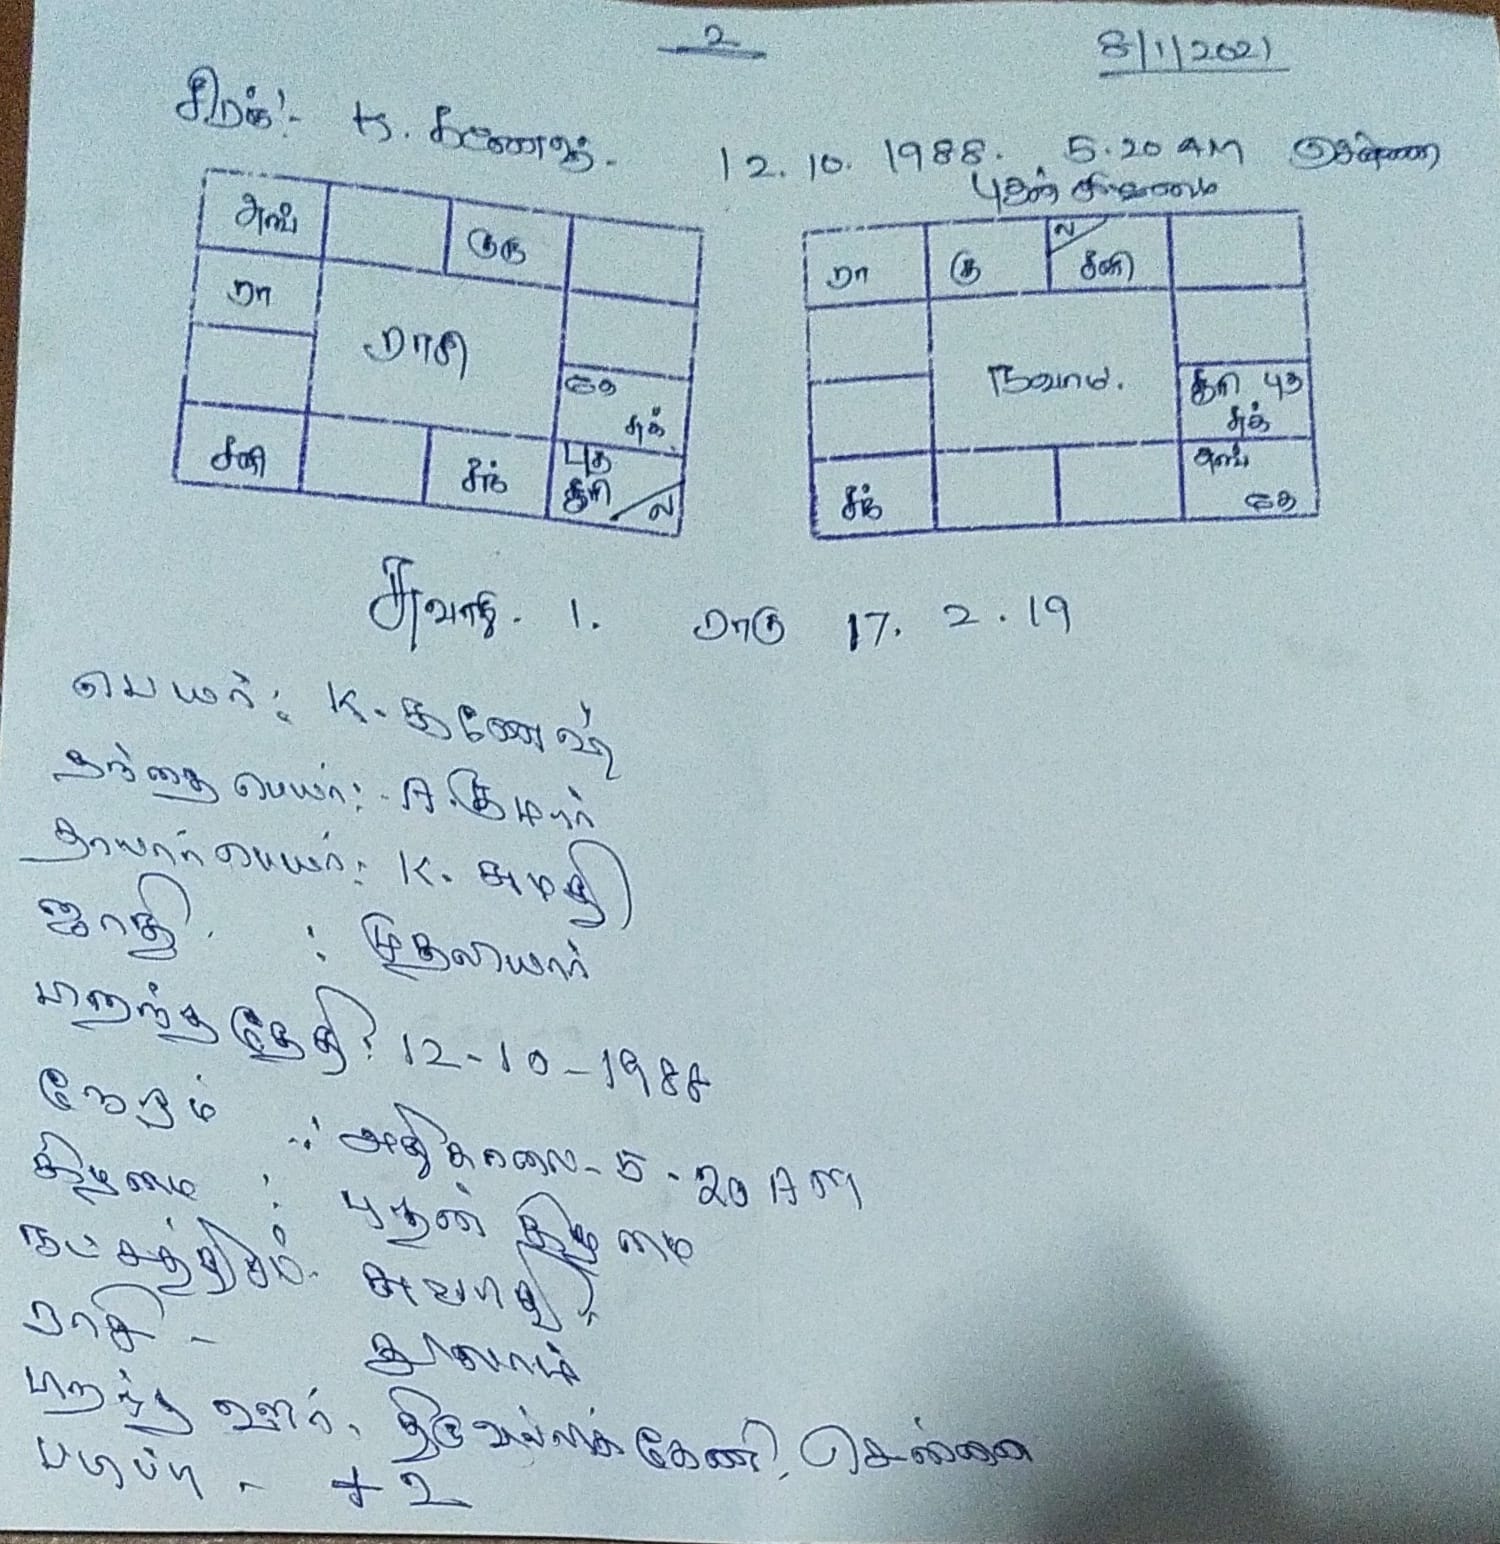 உ
8/1/2021
சிறக்:- K. கணேஷ்.
12.10.1988. 5.20 AM சென்னை
புதன் கிழமை
அங்
குரு
ரா
ராசி
கே
சுக்
சனி
சந்
புத
சூரி
ல
ரா
கு
ல
சனி
நவாம்.
சூரி புத
சுக்
சந்
அங்
கே
சுவாதி. 1. ராகு 17. 2. 19
பெயர்: K. கணேஷ்
தந்தை பெயர்:- A. குமார்
தாயார் பெயர்: K. சுமதி
ஜாதி : முதலியார்
பிறந்த தேதி: 12-10-1988
நேரம் : அதிகாலை - 5-20 AM
கிழமை : புதன் கிழமை
நட்சத்திரம். சுவாதி,
ராசி - துலாம்
பிறந்த ஊர். திருவல்லிக்கேணி, சென்னை
படிப்பு - +2